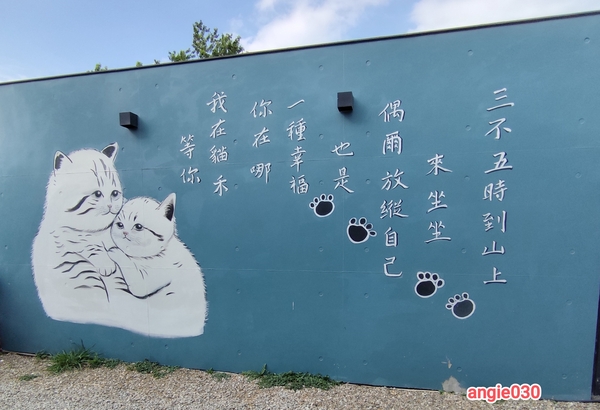 三不五時到山上
來坐坐
偶爾放縱自己
也是
一種幸福
你在哪
我在貓禾
等你
angie030